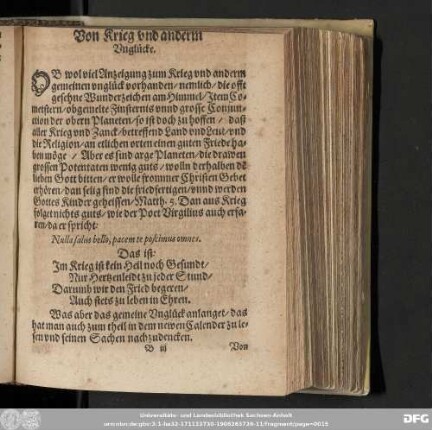 Von Krieg vnd anderm
Vnglücke.
OB wol viel Anzeigung zum Krieg vnd anderm
gemeinen vnglück vorhanden/ nemlich/ die offt
gesehne Wunderzeichen am Himmel/ Item Co-
meistern/ obgemelte Finsternis vnnd grosse Conjun-
nion der obern Planeten/ so ist doch zu hoffen/ daß
aller Krieg vnd Zanck/ betreffend Land vnd Leut/ vnd
die Religion/ an etlichen orten einen guten Friede ha-
ben möge/ Aber es sind arge Planeten/ die drawen
grossen Potentaten wenig guts/ wolln derhalben dē
lieben Gott bitten/ er wolle frommer Christen Gebet
erhören/ dan selig sind die friedfertigen/ vnnd werden
Gottes Kinder geheissen/ Matth. 5. Dan aus Krieg
folget nichts guts/ wie der Poet Virgilius auch erfa-
ren/ da er spricht:
Nulla salus bello, pacem te poscimus omnes.
Das ist:
Im Krieg ist kein Heil noch Gesundt/
Nur Hertzenleidt zu jeder Stund/
Darumb wir den Fried begeren/
Auch stets zu leben in Ehren.
Was aber das gemeine Vnglück anlanget/ das
hat man auch zum theil in dem newen Calender zu le-
sen vnd seinen Sachen nachzudencken.
B iij Von
Universitäts- und Landesbibliothek Sachsen-Anhalt
DFG